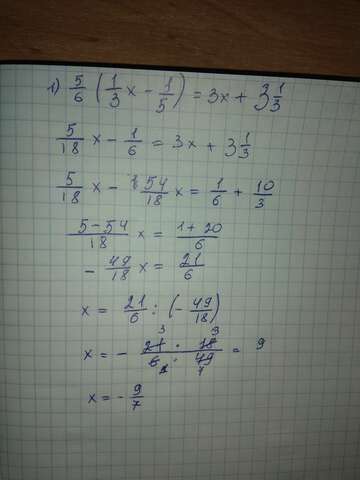 1) 5/6 (1/3 x - 1/5) = 3x + 3 1/3
5/18 x - 1/6 = 3x + 3 1/3
5/18 x - 54/18 x = 1/6 + 10/3
5-54/18 x = 1+20/6
- 49/18 x = 21/6
x = 21/6 : (- 49/18)
x = - 21 · 18 / 6 · 49 = 9
x = - 9/7